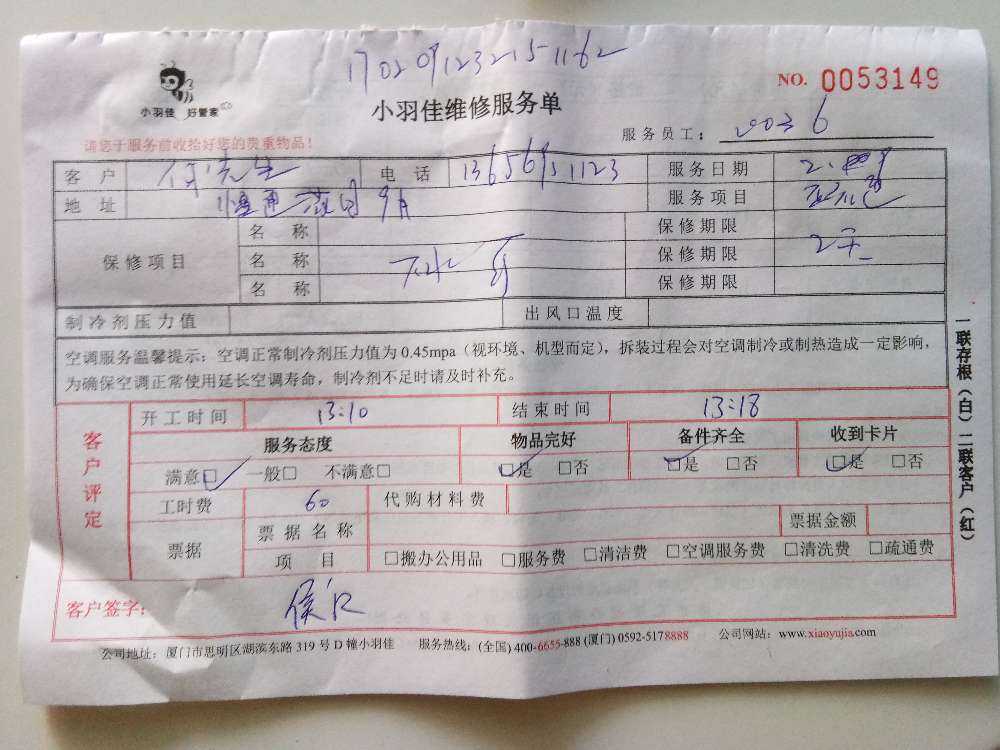 1702091232151162
NO. 0053149
小羽佳 好管家
小羽佳维修服务单
请您于服务前收拾好您的贵重物品！
服务员工： 20036
客户 先生 电话 服务日期
地址 服务项目
保修项目 名称 保修期限
名称 下水 保修期限 2天
名称 保修期限
制冷剂压力值 出风口温度
空调服务温馨提示：空调正常制冷剂压力值为0.45mpa（视环境、机型而定），拆装过程会对空调制冷或制热造成一定影响，
为确保空调正常使用延长空调寿命，制冷剂不足时请及时补充。
客户评定
开工时间 13:10 结束时间 13:18
服务态度 物品完好 备件齐全 收到卡片
满意□ 一般□ 不满意□ □是 □否 □是 □否 □是 □否
工时费 60 代购材料费
票据 票据名称 票据金额
项目 □搬办公用品 □服务费 □清洁费 □空调服务费 □清洗费 □疏通费
客户签字：
公司地址：厦门市思明区湖滨东路319号D幢小羽佳 服务热线：(全国) 400-6655-888 (厦门) 0592-5178888 公司网站：www.xiaoyujia.com
一联存根（白）二联客户（红）